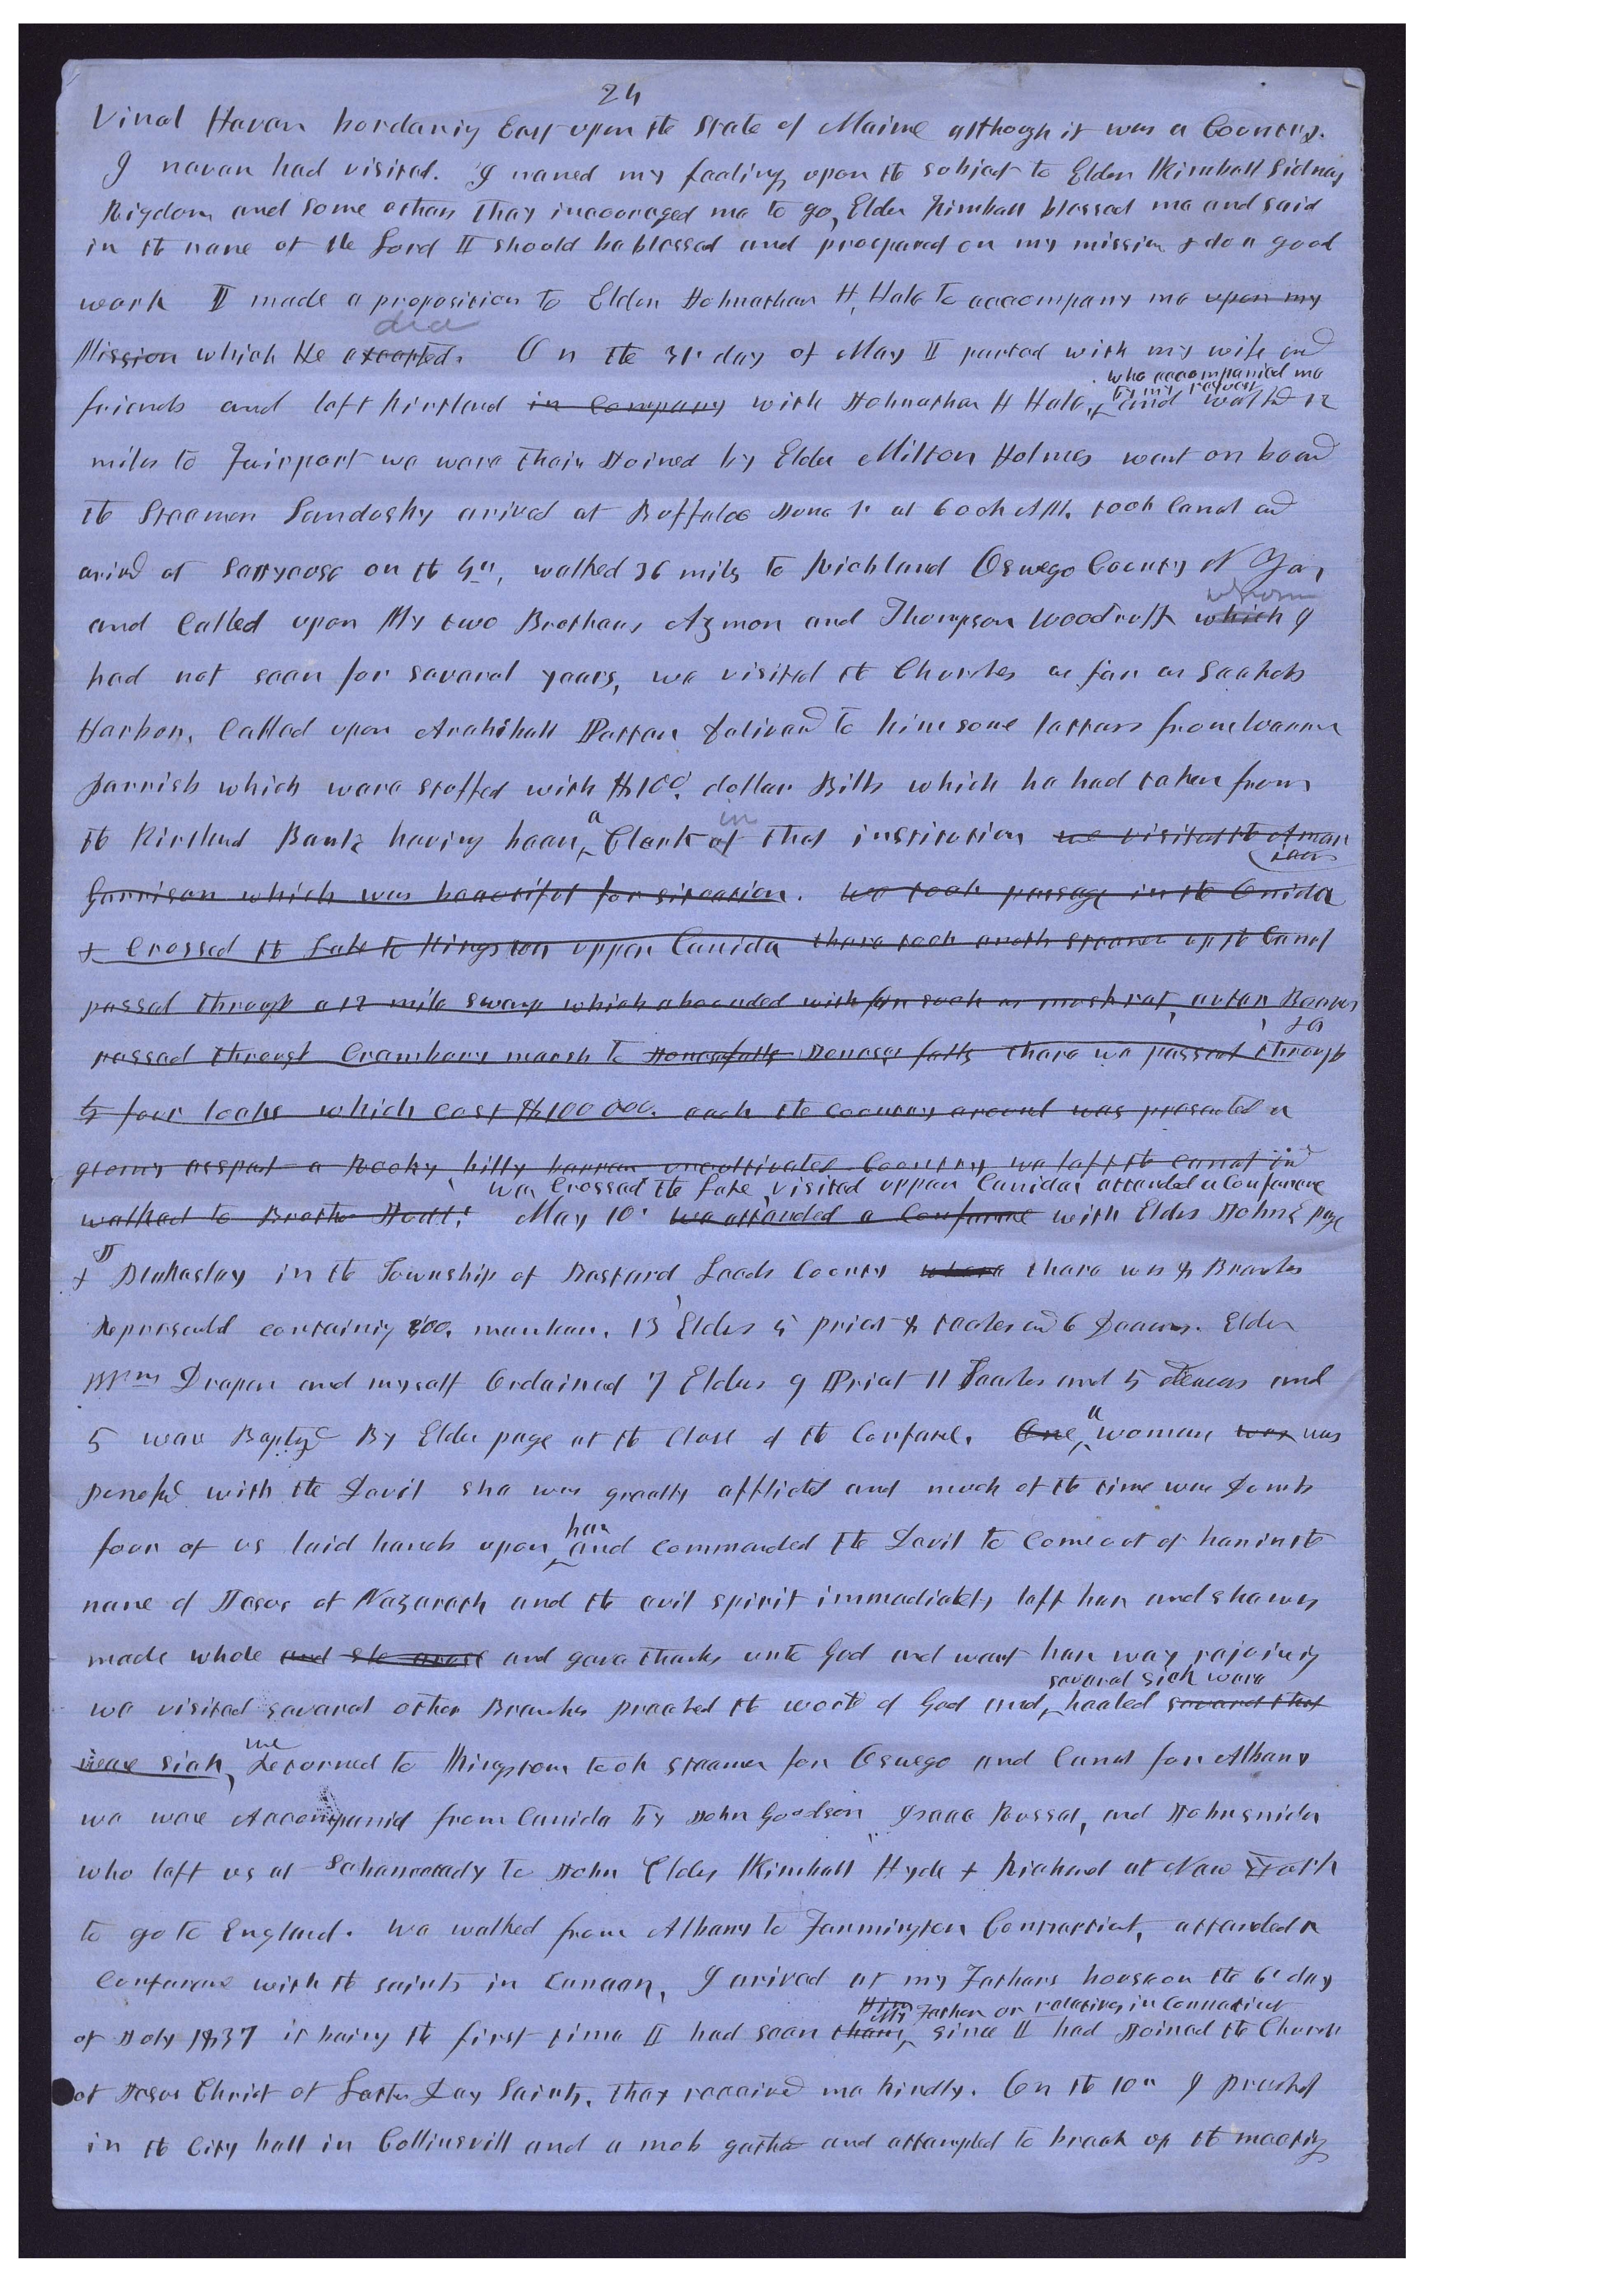 24
Vinal Haven bordering East upon the State of Maine although it was a Country.
I never had visited. I named my feelings upon the subject to Elder Kimball Sidney
Rigdom and some others They incouraged me to go, Elder Kimball blessed me and said
in the name of the Lord I should be blessed and prospered on my mission & do a good
work I made a proposition to Elder Johnathan H, Hale to accompany me upon my
did
Mission which He excepted. On the 31st day of May I parted with my wife and
who accompanied me
by my request
friends and left Kirtland in company with Johnathan H Hale, and walked 12
miles to Fairport we were their Joined by Elder Milton Holmes went on board
the Steemer Sandosky arived at Buffaloe June 1st at 6 ock AM. took canal and
arived at Sarrycose on the 4th, walked 36 miles to Richland Oswego County N Y
whom
and Called upon My two Brothers Azmon and Thompson Woodruff which I
had not seen for several years, we visited the Churches as far as Sackets
Harbor, Called upon Archiball Patten delivered to him some letters from Warren
Parrish which were stuffed with $100. dollar Bills which he had taken from
a in
the Kirtland Bank having been Clerk of that institution we visited the
Garrison which was beautiful for situation. We took passage in the Onida
& Crossed the Lake to Kingston upper Canida there took another steamer up the Canal
passed through a 12 mile swamp which abounded with fur such as muskrat, otter, Beaver
&c
passed through Cranbary marsh to Jones falls Jones falls there we passed through
by four locks which cost $100 000. each the country around was presented a
gloomy asspect a Rocky, hilly barren uncultivated Country we left the canal and
we Crossed the Lake, visited upper Canida, attended a Conference
walked to Brother May 10th we attended a Conference with Elder John E page
J
& Blakesley in the Township of Bastard, Leeds County where there was 8 Branches
Represented containing 300, members. 13 Elders 5 priest 8 teachers and 6 Deacons. Elder
Wm Draper and myself Ordained 7 Elders 9 Priest 11 Teachers and 5 deacons and
5 were Baptized By Elder page at the Close of the Conference.
a
One woman was was
possesed with the Devil she was greatly afflicted and much of the time was Dumb
her
four of us laid hands upon and commanded the Devil to Come out of her in the
name of Jesus of Nazareth and the evil spirit immediately left her and she was
made whole and she arose and gave thanks unto God and went her way rejoicing
several sick were
we visited several other Branches preached the word of God and healed several that
we
were sick, Returned to Kingstom took steamer for Oswego and Canal for Albany
we were Accompanid from Canida by John Goodson, Isaac Russel, and John Snider
who left us at Schanectady to John Elders Kimball Hyde & Richard at New York
to go to England. We walked from Albany to Farmington Connecticut, attended a
Conference with the saints in Canaan, I arived at my Fathers house on the 6th day
Him
My Father or relatives in Connecticut
of July 1837 it being the first time I had seen them since I had Joined the Church
of Jesus Christ of Latter Day Saints. They received me kindly. On the 10th I preached
in the City hall in Collinsvill and a mob gather and attempted to break up the meeting